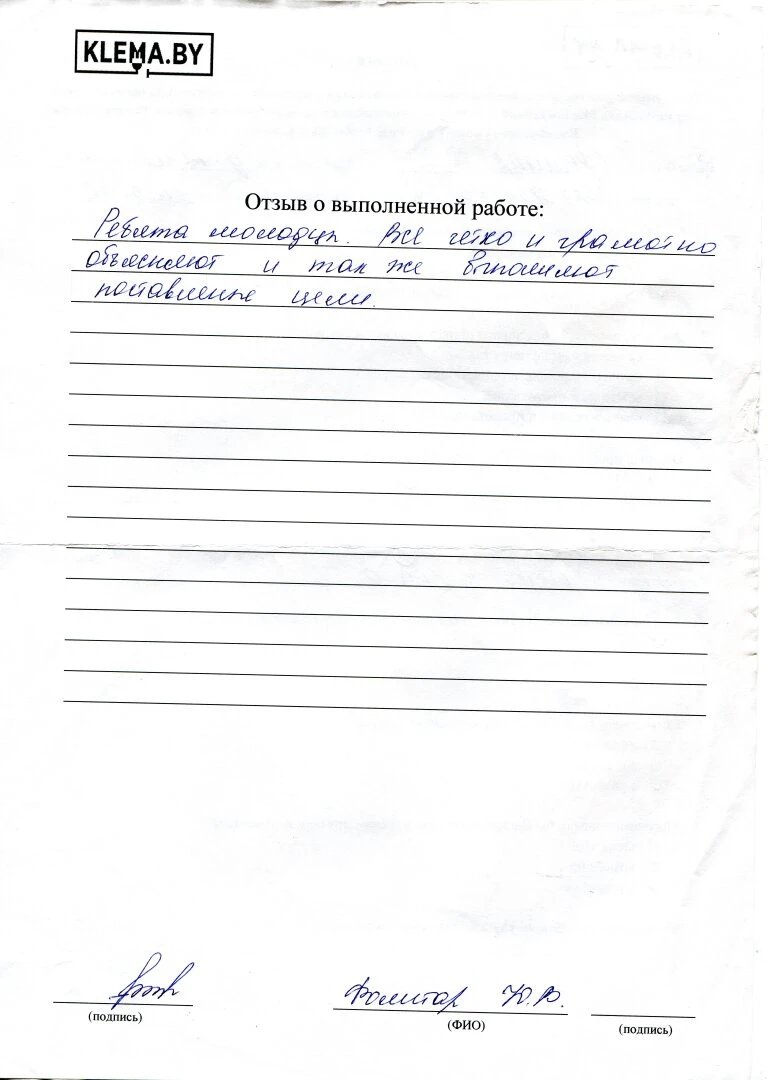 KLEMA.BY
Отзыв о выполненной работе:
Ребята молодцы. Все четко и грамотно
объясняют и так же выполняют
поставленые цели.
Ю.В.
(подпись)
(ФИО)
(подпись)